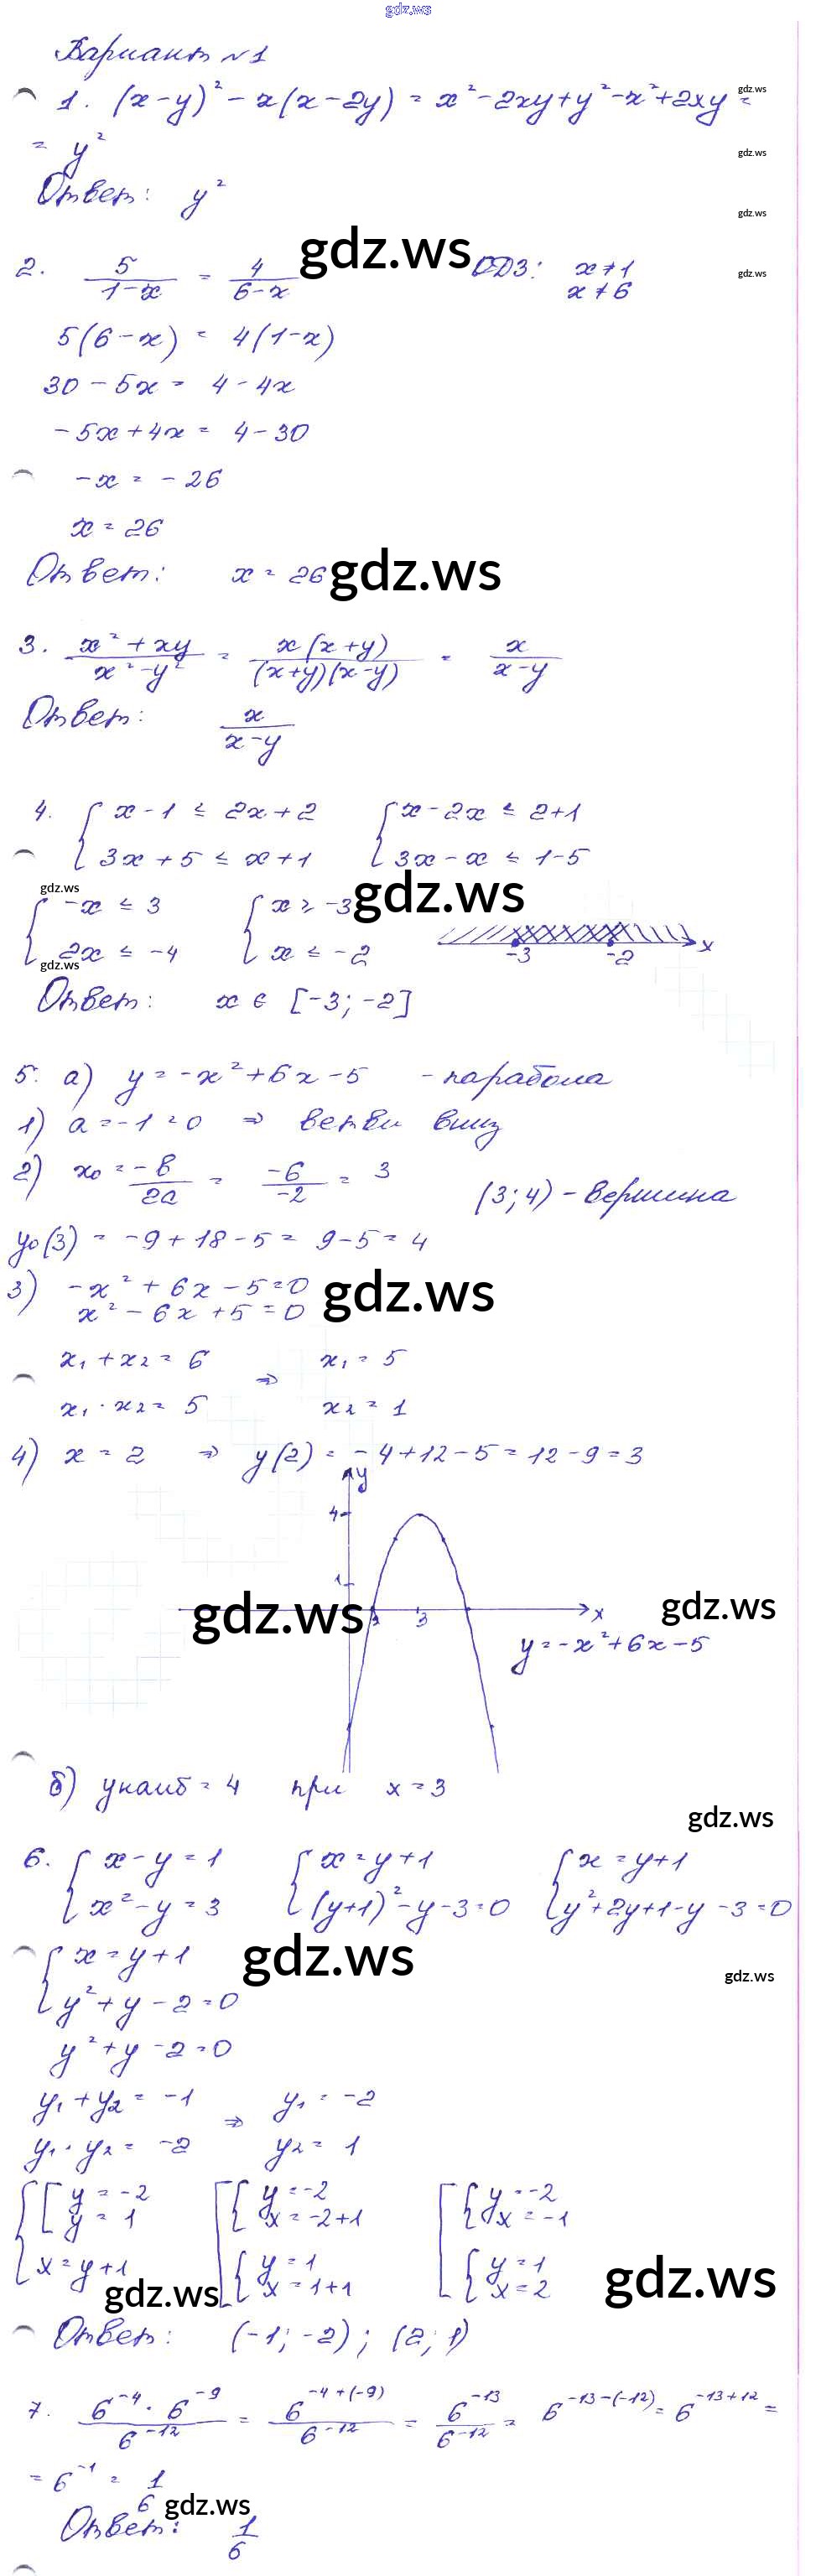 gdz.ws
Вариант №1
1. (x-y)² - x(x-2y) = x² - 2xy + y² - x² + 2xy = gdz.ws
= y² gdz.ws
Ответ: y² gdz.ws
2. 5/(1-x) = 4/(6-x) gdz.ws ОДЗ: x≠1 gdz.ws
x≠6
5(6-x) = 4(1-x)
30 - 5x = 4 - 4x
-5x + 4x = 4 - 30
-x = -26
x = 26
Ответ: x = 26 gdz.ws
3. (x² + xy)/(x² - y²) = x(x+y)/((x+y)(x-y)) = x/(x-y)
Ответ: x/(x-y)
4. { x - 1 ≤ 2x + 2 { x - 2x ≤ 2+1
3x + 5 ≤ x + 1 3x - x ≤ 1-5
gdz.ws gdz.ws
{ -x ≤ 3 { x ≥ -3
2x ≤ -4 x ≤ -2 -3 -2 x
gdz.ws
Ответ: x ∈ [-3; -2]
5. а) y = -x² + 6x - 5 - парабола
1) a = -1 < 0 ⇒ ветви вниз
2) x₀ = -в/2a = -6/-2 = 3 (3; 4) - вершина
y₀(3) = -9 + 18 - 5 = 9 - 5 = 4
3) -x² + 6x - 5 = 0 gdz.ws
x² - 6x + 5 = 0
x₁ + x₂ = 6 ⇒ x₁ = 5
x₁ · x₂ = 5 x₂ = 1
4) x = 2 ⇒ y(2) = -4 + 12 - 5 = 12 - 9 = 3
y
4
1
gdz.ws 3 x gdz.ws
y = -x² + 6x - 5
б) yнаиб = 4 при x = 3
gdz.ws
6. { x - y = 1 { x = y + 1 { x = y + 1
x² - y = 3 (y+1)² - y - 3 = 0 y² + 2y + 1 - y - 3 = 0
{ x = y + 1 gdz.ws gdz.ws
y² + y - 2 = 0
y² + y - 2 = 0
y₁ + y₂ = -1 ⇒ y₁ = -2
y₁ · y₂ = -2 y₂ = 1
{ [ y = -2 [ { y = -2 [ { y = -2
y = 1 x = -2+1 x = -1
x = y + 1 { y = 1 { y = 1 gdz.ws
gdz.ws x = 1+1 x = 2
Ответ: (-1; -2); (2; 1)
7. (6⁻⁴ · 6⁻⁹)/6⁻¹² = 6^(-4+(-9))/6⁻¹² = 6⁻¹³/6⁻¹² = 6^(-13-(-12)) = 6^(-13+12) =
= 6⁻¹ = 1/6 gdz.ws
Ответ: 1/6